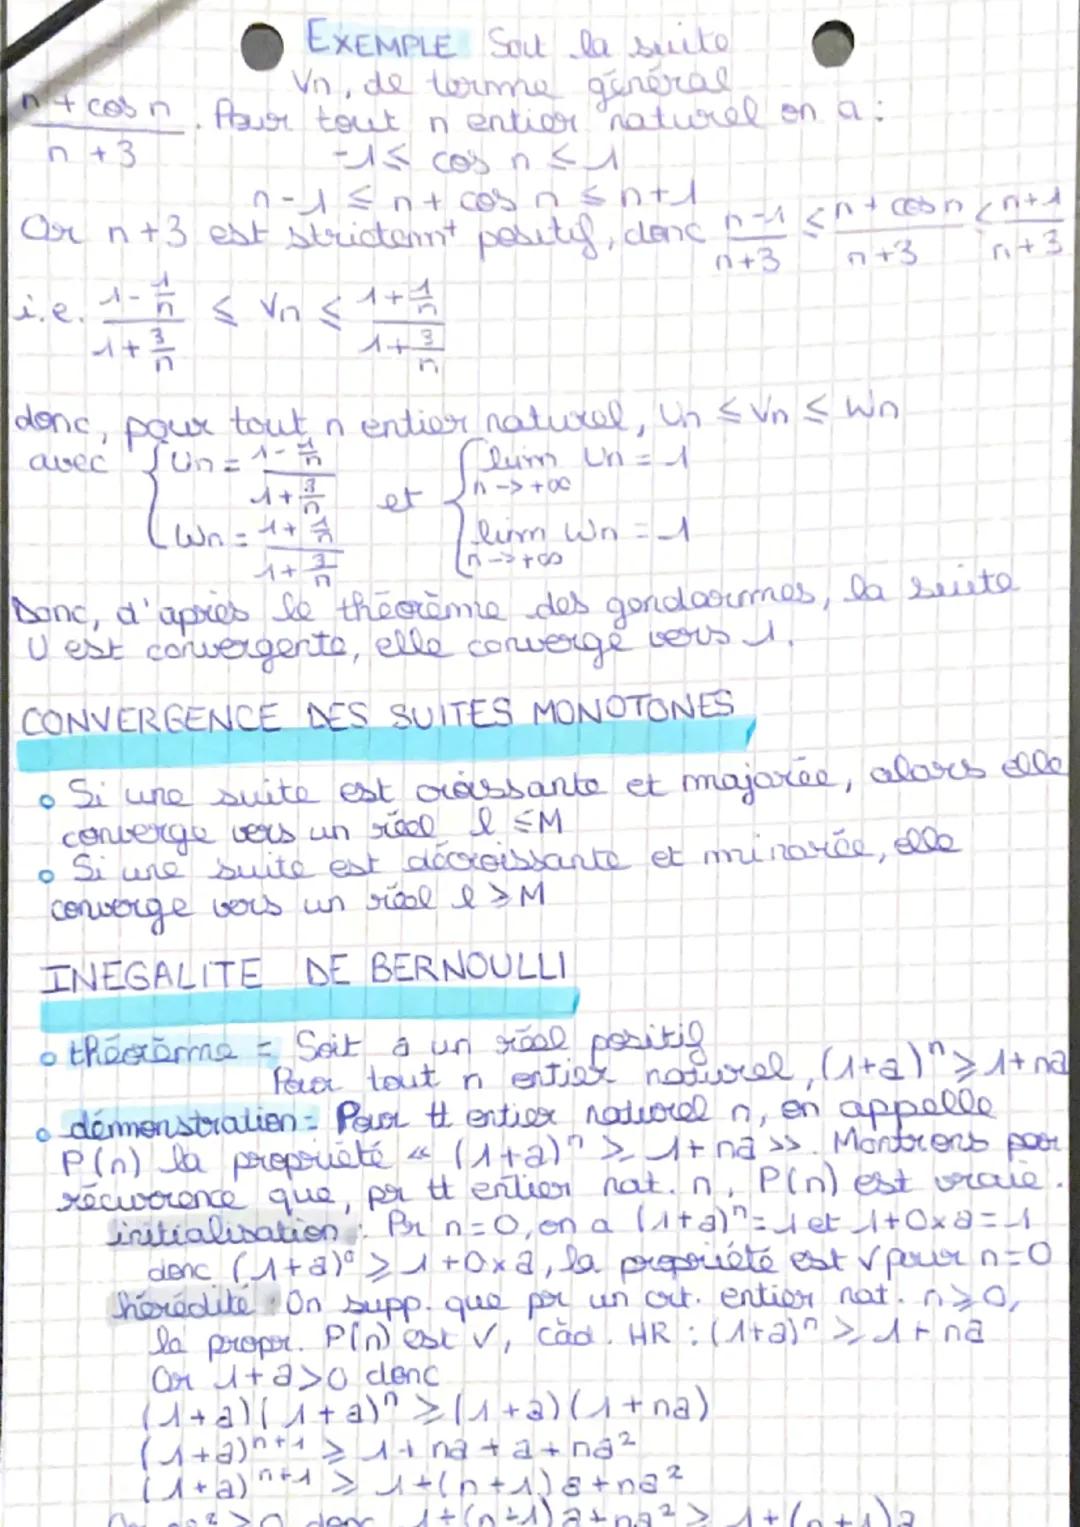 EXEMPLE Soit la suite
Vn, de terme général
(n + cos n)/(n + 3). Pour tout n entier naturel on a :
-1 ≤ cos n ≤ 1
n-1 ≤ n + cos n ≤ n+1
Or n+3 est strictemt positif, donc (n-1)/(n+3) ≤ (n + cos n)/(n+3) ≤ (n+1)/(n+3)
i.e. (1 - 1/n)/(1 + 3/n) ≤ Vn ≤ (1 + 1/n)/(1 + 3/n)
donc, pour tout n entier naturel, Un ≤ Vn ≤ Wn
avec { Un = (1 - 1/n)/(1 + 3/n) et { lim n->+∞ Un = 1
{ Wn = (1 + 1/n)/(1 + 3/n) { lim n->+∞ Wn = 1
Donc, d'après le théorème des gendarmes, la suite
U est convergente, elle converge vers 1.
CONVERGENCE DES SUITES MONOTONES
o Si une suite est croissante et majorée, alors elle
converge vers un réel l ≤ M
o Si une suite est décroissante et minorée, elle
converge vers un réel l ≥ M
INEGALITE DE BERNOULLI
o théorème = Soit a un réel positif
Pour tout n entier naturel, (1+a)ⁿ ≥ 1+na
o démonstration = Pour tt entier naturel n, on appelle
P(n) la propriété « (1+a)ⁿ ≥ 1+na ». Montrons par
récurrence que, pr tt entier nat. n, P(n) est vraie.
initialisation : Pr n=0, on a (1+a)ⁿ = 1 et 1+0×a = 1
donc (1+a)⁰ ≥ 1+0×a, la propriété est V pour n=0
hérédité : On supp. que pr un crt. entier nat. n≥0,
la propr. P(n) est V, càd. HR : (1+a)ⁿ ≥ 1+na
Or 1+a>0 donc
(1+a)(1+a)ⁿ ≥ (1+a)(1+na)
(1+a)ⁿ⁺¹ ≥ 1+na+a+na²
(1+a)ⁿ⁺¹ ≥ 1+(n+1)a+na²
donc 1+(n+1)a+na² ≥ 1+(n+1)a